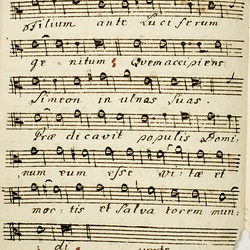 Filium ante Luci ferum
ge nitum Quem accipiens
Simeon in ulnas Suas.
Præ dicavit populis Domi:
num eum esse vi: tæ et
mor: tis et Salva torem mun:
di